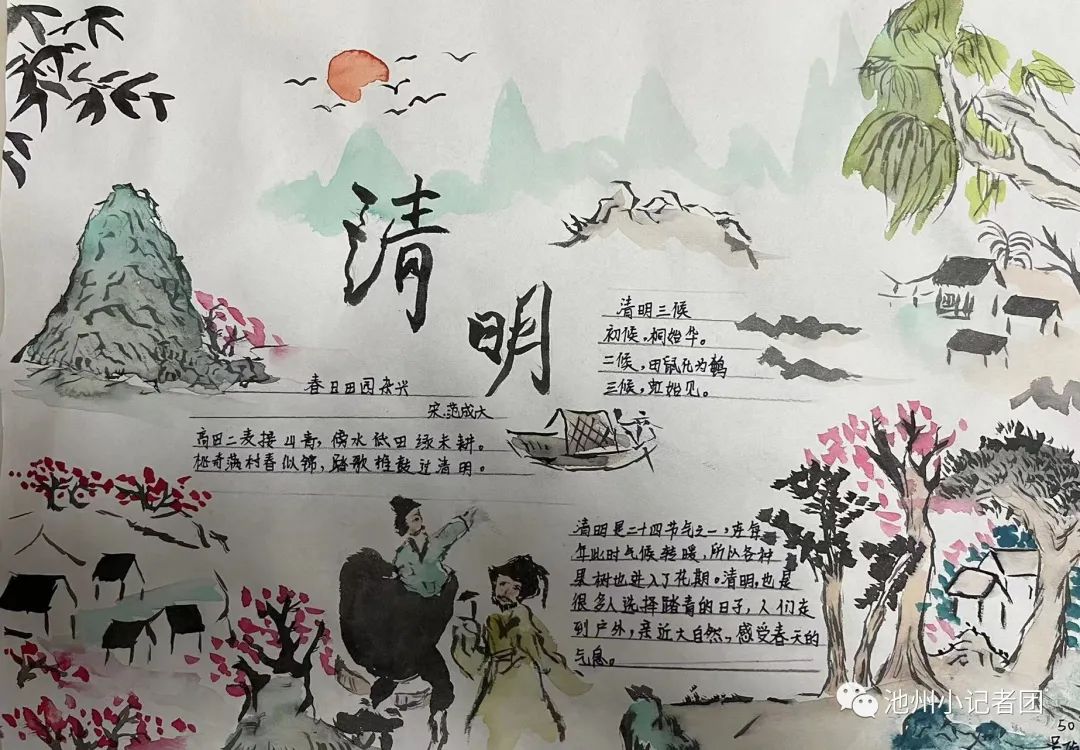 清明
清明三候
初候，桐始华。
二候，田鼠化为鹌
三候，虹始见。
春日田园杂兴
宋.范成大
高田二麦接山青，傍水低田绿未耕。
桃杏满村春似锦，踏歌椎鼓过清明。
清明是二十四节气之一，在每
年此时气候转暖，所以各种
果树也进入了花期。清明，也是
很多人选择踏青的日子，人们走
到户外，亲近大自然，感受春天的
气息。
池州小记者团
50